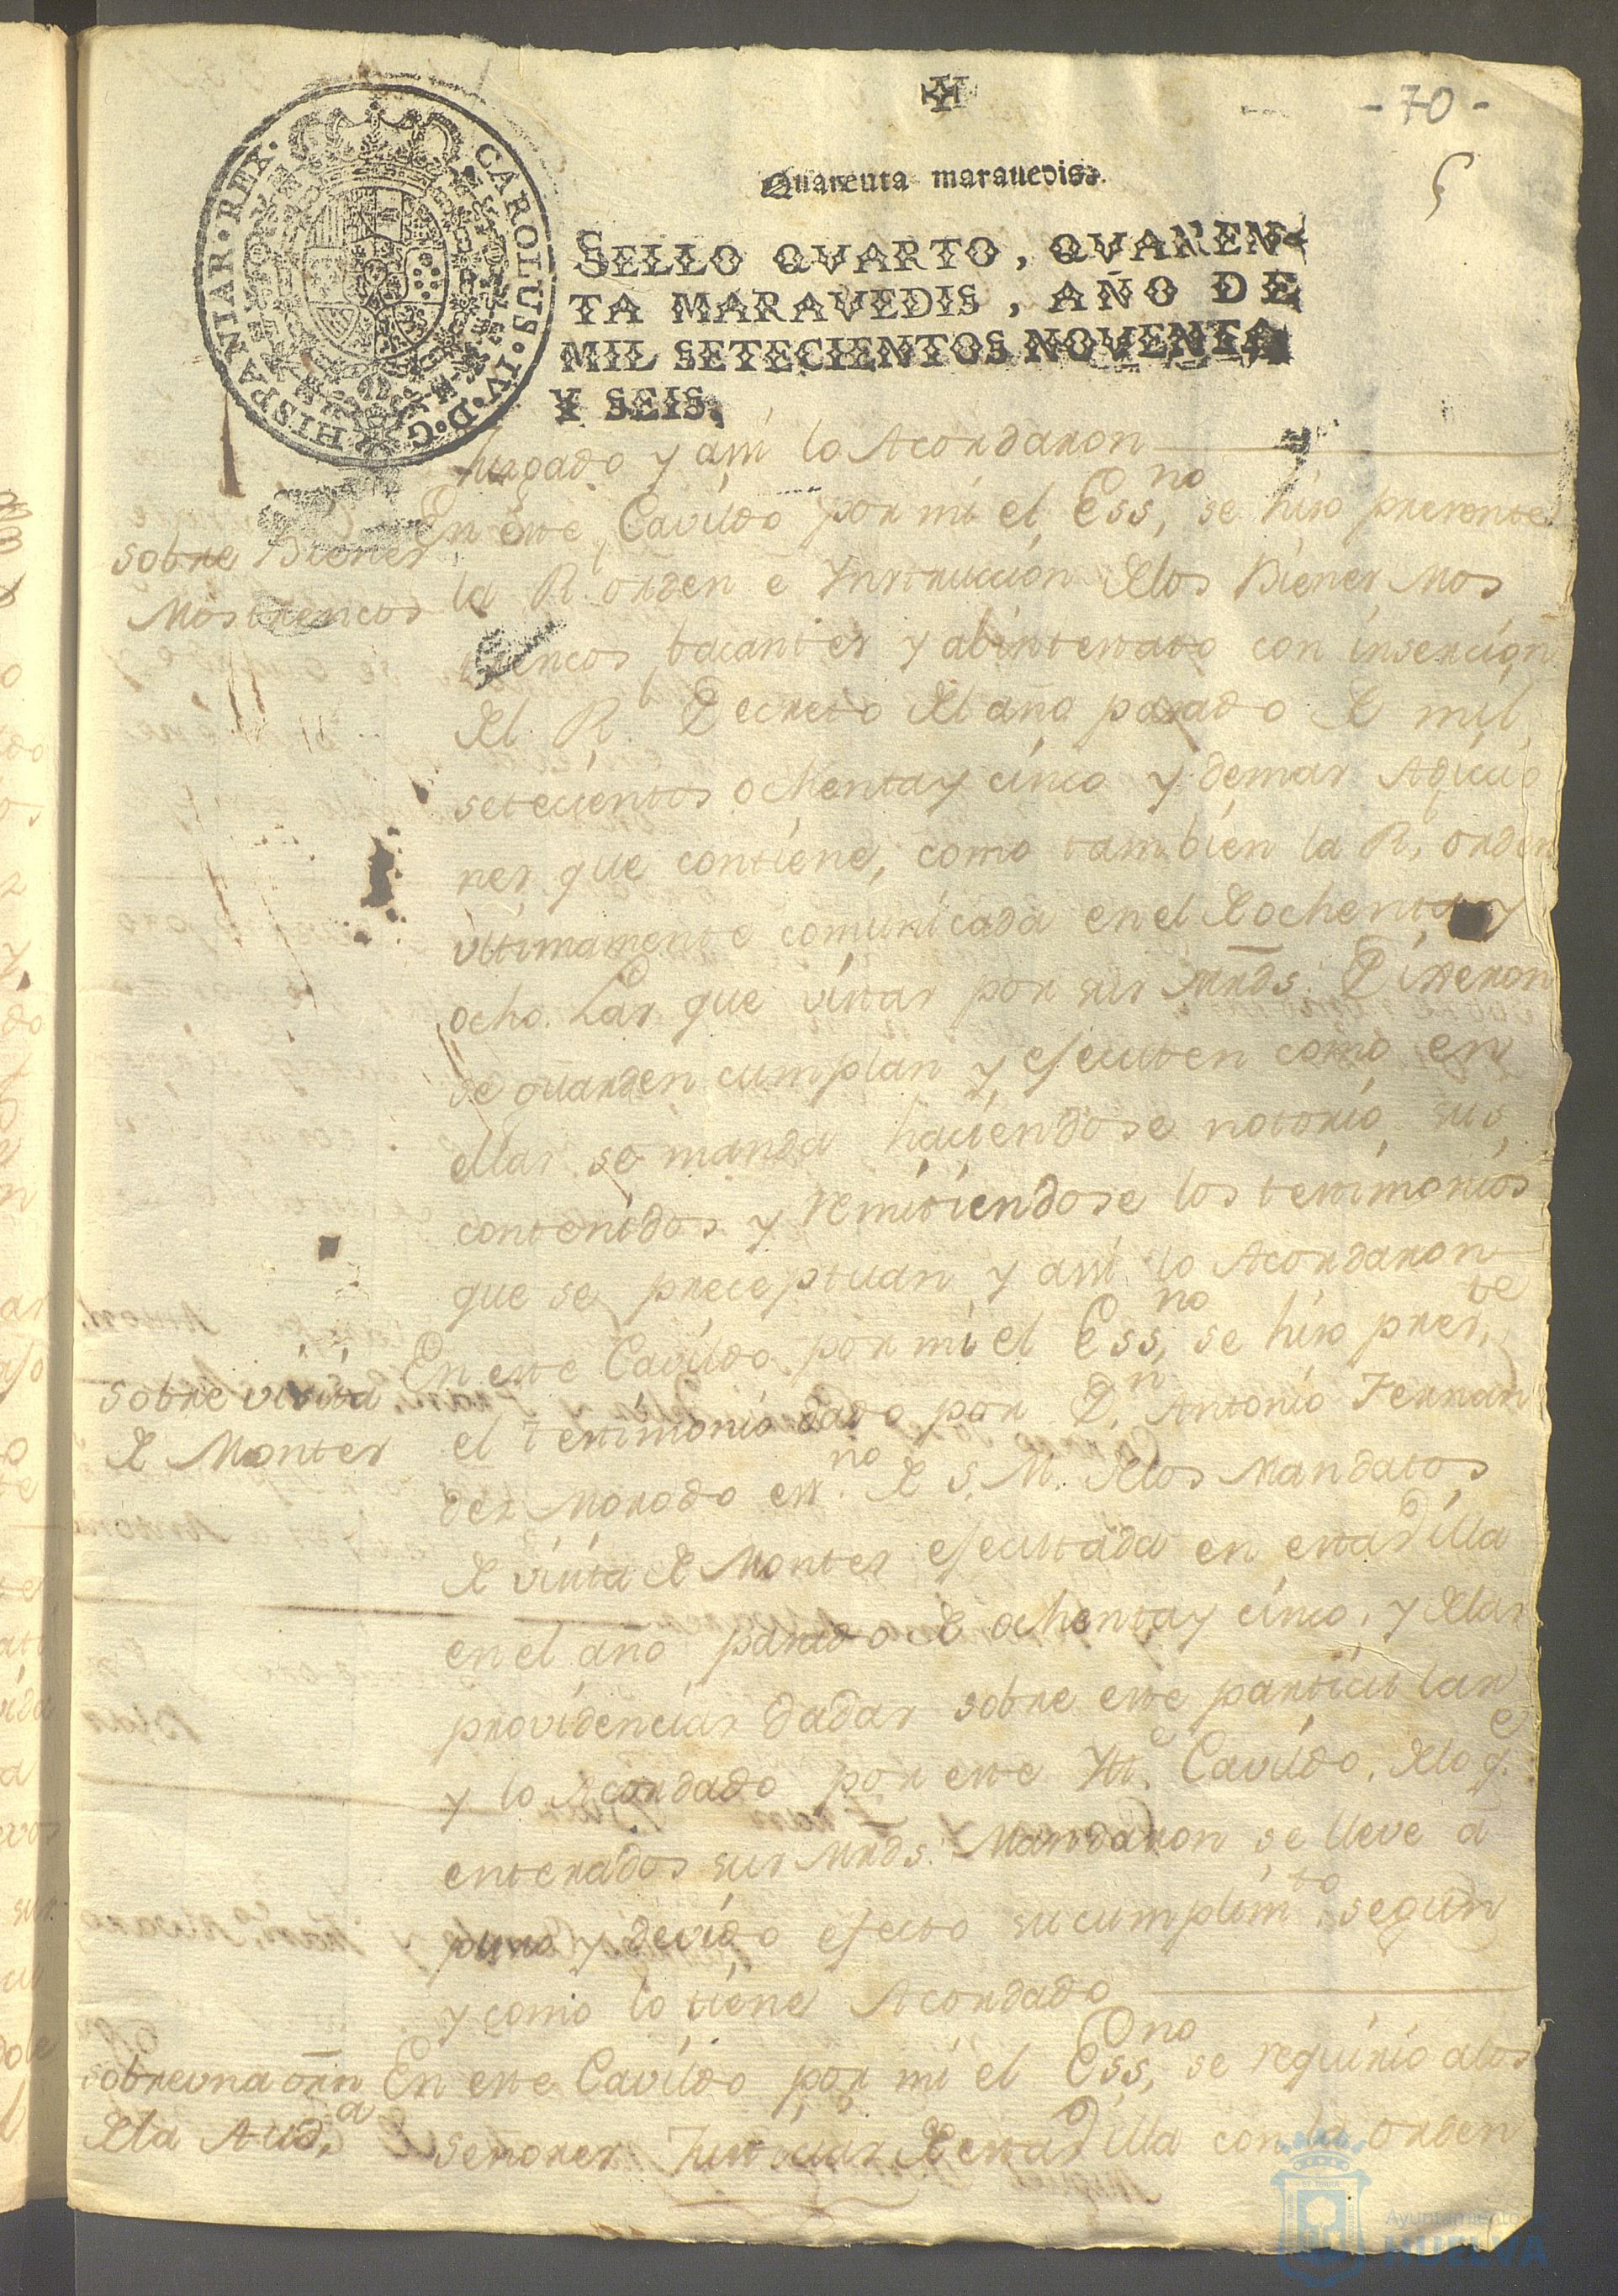 - 70 -
5
Quarenta marauedis.
SELLO QVARTO, QVAREN-
TA MARAVEDIS, AÑO DE
MIL SETECIENTOS NOVENTA
Y SEIS.
CAROLUS·IV·D·G·HISPANIAR·REX·
Juzgado y assi lo Acordaron
sobre Bienes
Mostrencos
En este Cavildo por mi el Ess,no se hizo presente
la Rl orden e Ynstruccion delos Bienes Mos
trencos, bacantes y abintestato con insercion
del Rl Decreto del año pasado de mil
setecientos ochenta y cinco y demas Adiccio
nes que contiene, como tambien la Rl orden
ultimamente comunicada en el de ochenta y
ocho. Las que vistas por sus Mrds. Dixeron
se guarden cumplan y executen como en
ellas se manda haciendose notorio sus
contenidos y remitiendose los testimonios
que se preceptuan y assi lo Acordaron
sobre visita
de Montes
En este Cavildo por mi el Ess,no se hizo pres,te
el testimonio dado por Dn. Antonio Fernan
des Morodo ess.no de S. M. delos Mandatos
de visita de Montes executada en esta Villa
en el año pasado de ochenta y cinco, y delas
providencias dadas sobre este particular
y lo Acordado por este Ytte. Cavildo, delo q.e
enterados sus Mrds. Mandaron se lleve a
puro y devido efecto su cumplim.to segun
y como lo tiene Acordado
sobre una orn
dela Aud,a
En este Cavildo por mi el Ess,no se requirio alos
señores Justicias de esta Villa con la orden
Ayuntamiento de
HUELVA